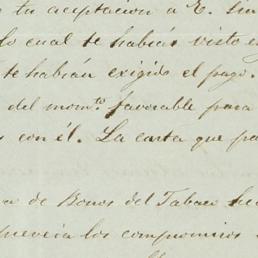 tu aceptacion a E.
lo cual te habias visto
te habian exigido el pago.
del mom.to favorable para
con él. La carta que
de Bonos del Tabaco
los compromisos